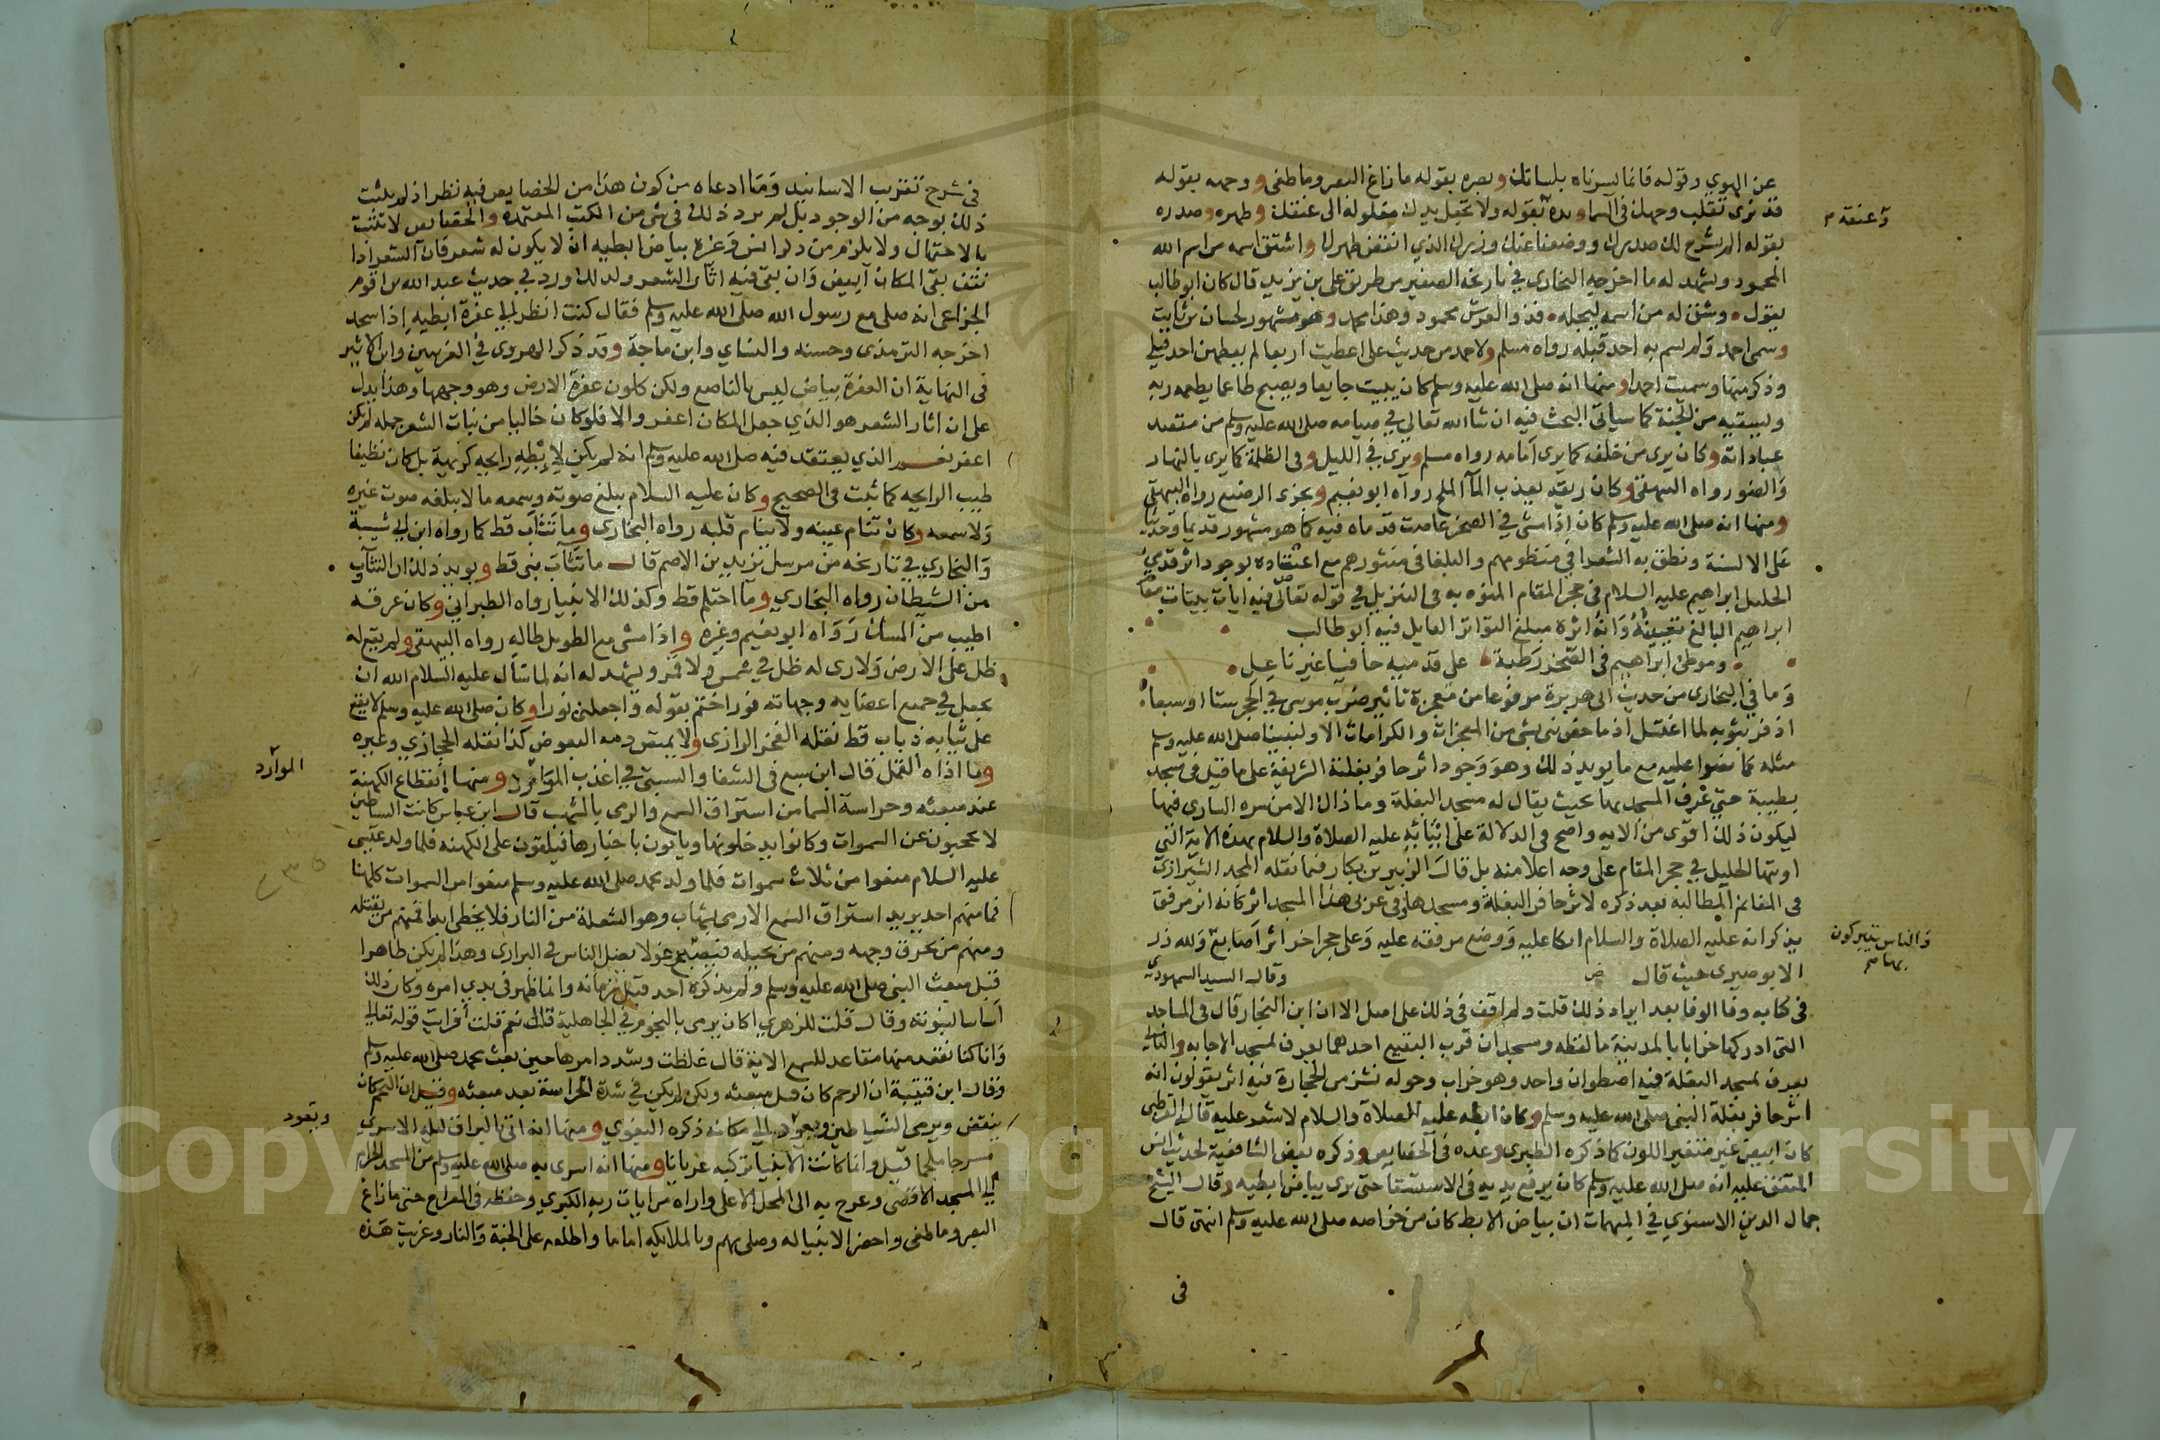 عن الهوي وقوله فانما يسرناه بلسانك وبصره بقوله ما زاغ البصر وما طغى و وجهه بقوله
قد نرى تقلب وجهك في السما ويده بقوله ولا تجعل يدك مغلولة الى عنقك وظهره وصدره
بقوله الم نشرح لك صدرك ووضعنا عنك وزرك الذي انقض ظهرك واشتق اسمه من اسم الله
المحمود ويشهد له ما اخرجه البخاري في تاريخه الصغير من طريق علي بن يزيد قال كان ابو طالب
يقول وشق له من اسمه ليجله فذو العرش محمود وهذا محمد وهو مشهور لحسان بن ثابت
وسمي احمد ولم يسم به احد قبله رواه مسلم ولاحمد من حديث علي اعطيت اربعا لم يعطهن احد قبلي
وذكر منها وسميت احمد ومنها انه صلى الله عليه وسلم كان يبيت جايعا ويصبح طاعما يطعمه ربه
ويسقيه من الجنة كما سياتى البحث فيه ان شا الله تعالى في صيامه صلى الله عليه وسلم من مقصد
عباداته وكان يرى من خلفه كما يرى امامه رواه مسلم ويرى في الليل وفى الظلمة كما يرى بالنهار
والضو رواه البيهقي وكان ريقه يعذب الما الملح رواه ابو نعيم ويجزى الرضيع رواه البيهقي
ومنها انه صلى الله عليه وسلم كان إذا مشى في الصخر غاصت قدماه فيه كما هو مشهور قديما وحديثا
على الالسنة ونطق به الشعرا في منظومهم والبلغا في منثورهم مع اعتقاده بوجود اثر قدمي
الخليل ابراهيم عليه السلام في حجر المقام المنوه به فى التنزيل في قوله تعالى فيه ايات بينات مقام
ابراهيم البالغ تعيينه وانه اثره مبلغ التواتر القايل فيه ابو طالب
وموطئ ابراهيم فى الصخر رطبة على قدميه حافيا غير ناعل
وما في البخارى من حديث ابى هريرة مرفوعا من معجزة تاثير ضرب موسى في الحجر ستا او سبعا
اذ فر بثوبه لما اغتسل اذ ما خص نبى بشى من المعجزات والكرامات الا ولنبينا صلى الله عليه وسلم
مثله كما نصوا عليه مع ما يويد ذلك وهو وجود اثر حافر بغلته الشريفة على ما قيل فى مسجد
بطيبة حتي عرف المسجد بها بحيث يقال له مسجد البغلة وما ذاك الا من سره السارى فيها
ليكون ذلك اقوى من الايه واضح في الدلالة على ايتائه عليه الصلاة والسلام بهذه الاية التي
اوتيها الخليل في حجر المقام على وجه اعلا منه بل قال الزبير بن بكار فيما نقله المجد الشيرازى
في المغانم المطابة بعد ذكره لاثر حافر البغلة ومسجدها وفى غربى هذا المسجد اثر كانه اثر مرفق
يذكر انه عليه الصلاة والسلام اتكا عليه ووضع مرفقه عليه وعلى حجر اخر اثر اصابع ولله در
الابوصيرى حيث قال وقال السيد السمهودي
فى كتابه وفا الوفا بعد ايراد ذلك قلت ولم اقف في ذلك على اصل الا ان ابن النجار قال فى المساجد
التى ادركها خرابا بالمدينة ما لفظه ومسجدان قرب البقيع احدهما يعرف لمسجد الاجابه والثانى
يعرف لمسجد البغلة فيه اصطوان واحد وهو خراب وحوله نشز من الحجارة فيه اثر يقولون انه
اثر حافر بغلة النبي صلى الله عليه وسلم وكان ابطه عليه الصلاة والسلام لا شعر عليه قال القرطبي
كان ابيض غير متغير اللون كما ذكره الطبري وعده فى الخصايص وذكره بعض الشافعية لحديث انس
المتفق عليه انه صلى الله عليه وسلم كان يرفع يديه في الاستسقا حتى يرى بياض ابطيه وقال الشيخ
جمال الدين الاسنوي في المهمات ان بياض الابط كان من خواصه صلى الله عليه وسلم انتهى قال
في
وعنقه
والناس يتبركون بها صح
في شرح تقريب الاسانيد وما ادعاه من كون هذا من الخصايص فيه نظر اذ لم يثبت
ذلك بوجه من الوجوه بل لم يرد ذلك في شى من الكتب المعتمدة والخصايص لا تثبت
بالاحتمال ولا يلزم من ذكر انس وغيره بياض ابطيه ان لا يكون له شعر فان الشعر اذا
نتف بقى المكان ابيض وان بقى فيه اثار الشعر ولذلك ورد في حديث عبد الله بن اقرم
الخزاعي انه صلى مع رسول الله صلى الله عليه وسلم فقال كنت انظر الى عفرة ابطيه إذا سجد
اخرجه الترمذى وحسنه والنساي وابن ماجة وقد ذكر الهروى في الغريبين وابن الاثير
فى النهاية ان العفرة بياض ليس بالناصع ولكن كلون عفرة الارض وهو وجهها وهذا يدل
على ان اثار الشعر هو الذي جعل المكان اعفر والا فلو كان خاليا من نبات الشعر جمله لم يكن
اعفر نعم الذي يعتقد فيه صلى الله عليه وسلم انه لم يكن لابطه رايحه كريهة بل كان نظيفا
طيب الرايحه كما ثبت فى الصحيح وكان عليه السلام يبلغ صوته وسمعه ما لا يبلغه صوت غيره
ولا سمعه وكان تنام عينه ولا ينام قلبه رواه البخارى وما تثأب قط كما رواه ابن ابي شيبة
والبخاري في تاريخه من مرسل يزيد بن الاصم قال ما تثأب نبى قط ويويد ذلك ان التثاوب
من الشيطان رواه البخاري وما احتلم قط وكذلك الانبيا رواه الطبراني وكان عرقه
اطيب من المسك رواه ابو نعيم وغيره واذا مشى مع الطويل طاله رواه البيهقي ولم يقع له
ظل على الارض ولا رى له ظل في شمس ولا قمر ويشهد له انه لما سأل عليه السلام الله ان
يجعل في جميع اعضايه وجهاته نورا ختم بقوله واجعلنى نورا وكان صلى الله عليه وسلم لا يقع
على ثيابه ذباب قط نقله الفخر الرازى ولا يمتص دمه البعوض كذا نقله الحجازي وغيره
وما اذاه القمل قال ابن سبع فى الشفا والسبتي في اعذب الموارد ومنها انقطاع الكهنة
عند مبعثه وحراسة السما من استراق السمع والرمى بالشهب قال ابن عباس كانت الشياطين
لا يحجبون عن السموات وكانوا يدخلونها وياتون باخبارها فيلقون على الكهنه فلما ولد عيسى
عليه السلام منعوا من ثلاث سموات فلما ولد محمد صلى الله عليه وسلم منعوا من السموات كلها
فما منهم احد يريد استراق السمع الا رمى بشهاب وهو الشعلة من النار فلا يخطى ابدا فمنهم من يقتله
ومنهم من يحرق وجهه ومنهم من يخبله فيصبح غولا يضل الناس فى البرارى وهذا لم يكن ظاهرا
قبل مبعث النبي صلى الله عليه وسلم ولم يذكره احد قبل زمانه وانما ظهر فى بدي امره وكان ذلك
أساسا لنبوته وقال قلت للزهري اكان يرمى بالنجوم في الجاهلية قال نعم قلت أفرايت قوله تعالى
وانا كنا نقعد منها مقاعد للسمع الاية قال غلظت وشدد امرها حين بعث محمد صلى الله عليه وسلم
وقال ابن قتيبة ان الرجم كان قبل مبعثه ولكن لم يكن في شدة الحراسة بعد مبعثه وقيل ان النجم كان
ينقض ويرمي الشياطين ويعود الى مكانه ذكره البغوي ومنها انه اتى بالبراق ليلة الاسرى
مسرجا ملجما قيل وانما كانت الانبيا تركبه عريانا ومنها انه اسرى به صلى الله عليه وسلم من المسجد الحرام
الى المسجد الاقصى وعرج به الى المحل الاعلى واراه من ايات ربه الكبري وحفظه فى المعراج حتى ما زاغ
البصر وما طغى واحضر الانبيا له وصلى بهم وبالملايكه اماما واطلعه على الجنة والنار وغريب هذه
الموارد
ويعود
Copyright © King Saud University